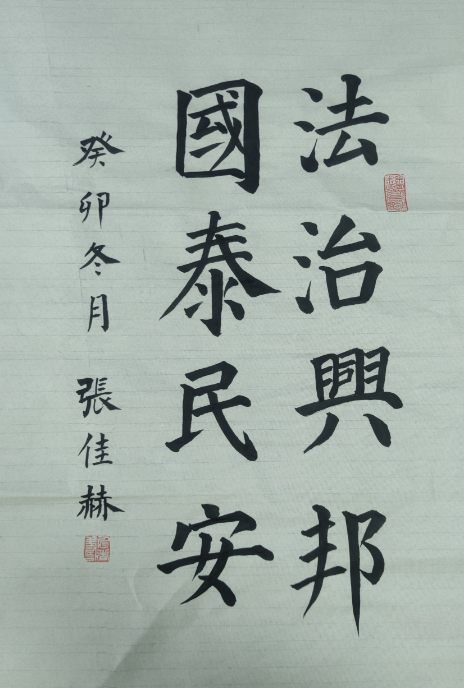 法治興邦
國泰民安
癸卯冬月 張佳赫